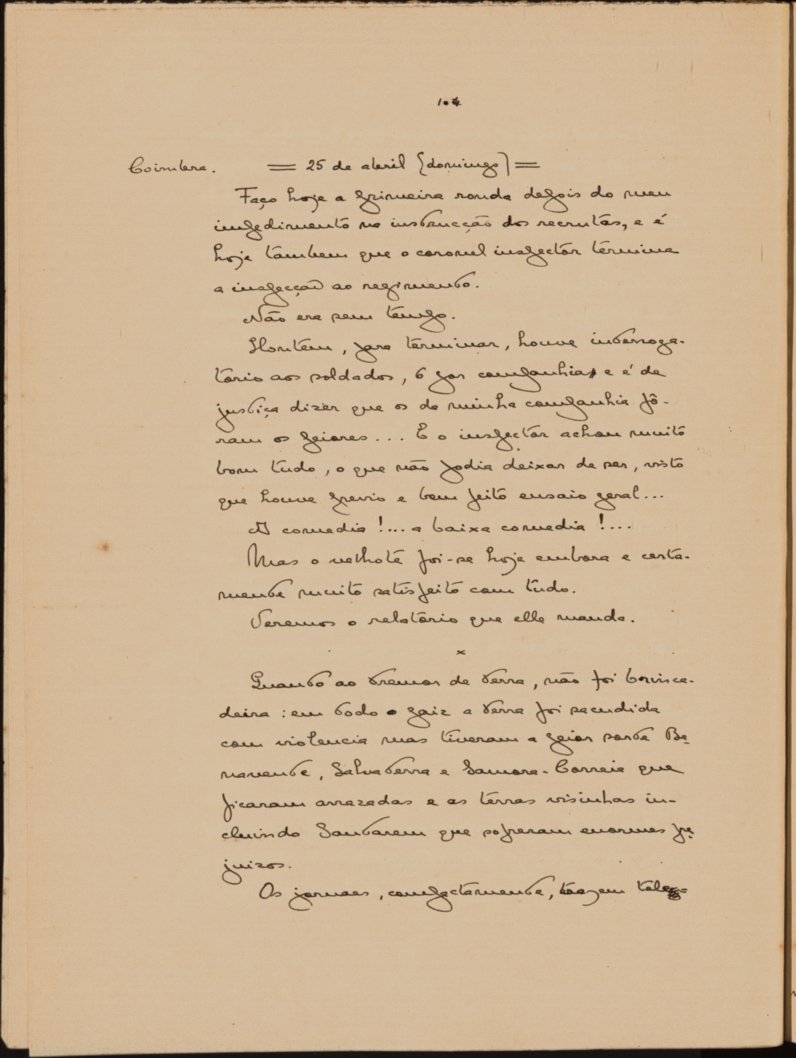 104
Coimbra. = 25 de abril (domingo) =
Faço hoje a primeira ronda depois do meu
impedimento na instrucção dos recrutas, e é
hoje tambem que o coronel inspector termina
a inspecção ao regimento.
Não era sem tempo.
Hontem, para terminar, houve interroga-
torio aos soldados, 6 por companhia, e é de
justiça dizer que os da minha companhia fô-
ram os peiores... E o inspector achou muito
bom tudo, o que não podia deixar de ser, visto
que houve previo e bem feito ensaio geral...
A comedia!... a baixa comedia!...
Mas o velhote foi-se hoje embora e certa-
mente muito satisfeito com tudo.
Veremos o relatorio que elle manda.
x
Quanto ao tremor de terra, não foi brinca-
deira: em todo o paiz a terra foi sacudida
com violencia mas tiveram a peior parte Be-
navente, Salvaterra e Samora-Correia que
ficaram arrazadas e as terras visinhas in-
cluindo Santarem que sofreram enormes pre-
juizos.
Os jornaes, compactamente, trazem